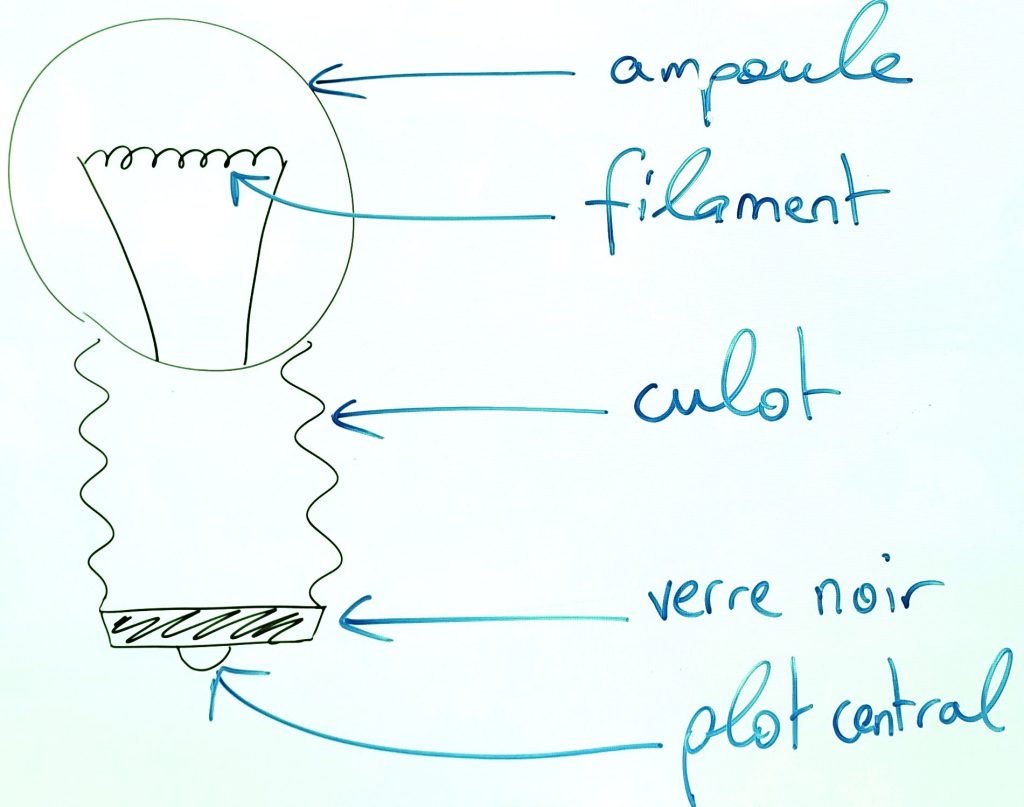 ampoule
filament
culot
verre noir
plot central